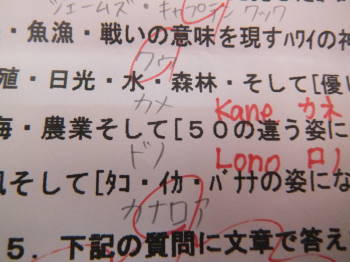 ジェームズ・キャプテン クック
・魚漁・戦いの意味を現すﾊﾜｲの神
クゥ
殖・日光・水・森林・そして[優し
カメ Kane カネ
海・農業そして[５０の違う姿に
ドノ Lono ロノ
風そして[ﾀｺ・ｲｶ・ﾊﾞﾅﾅの姿にな
カナロア
５．下記の質問に文章で答え